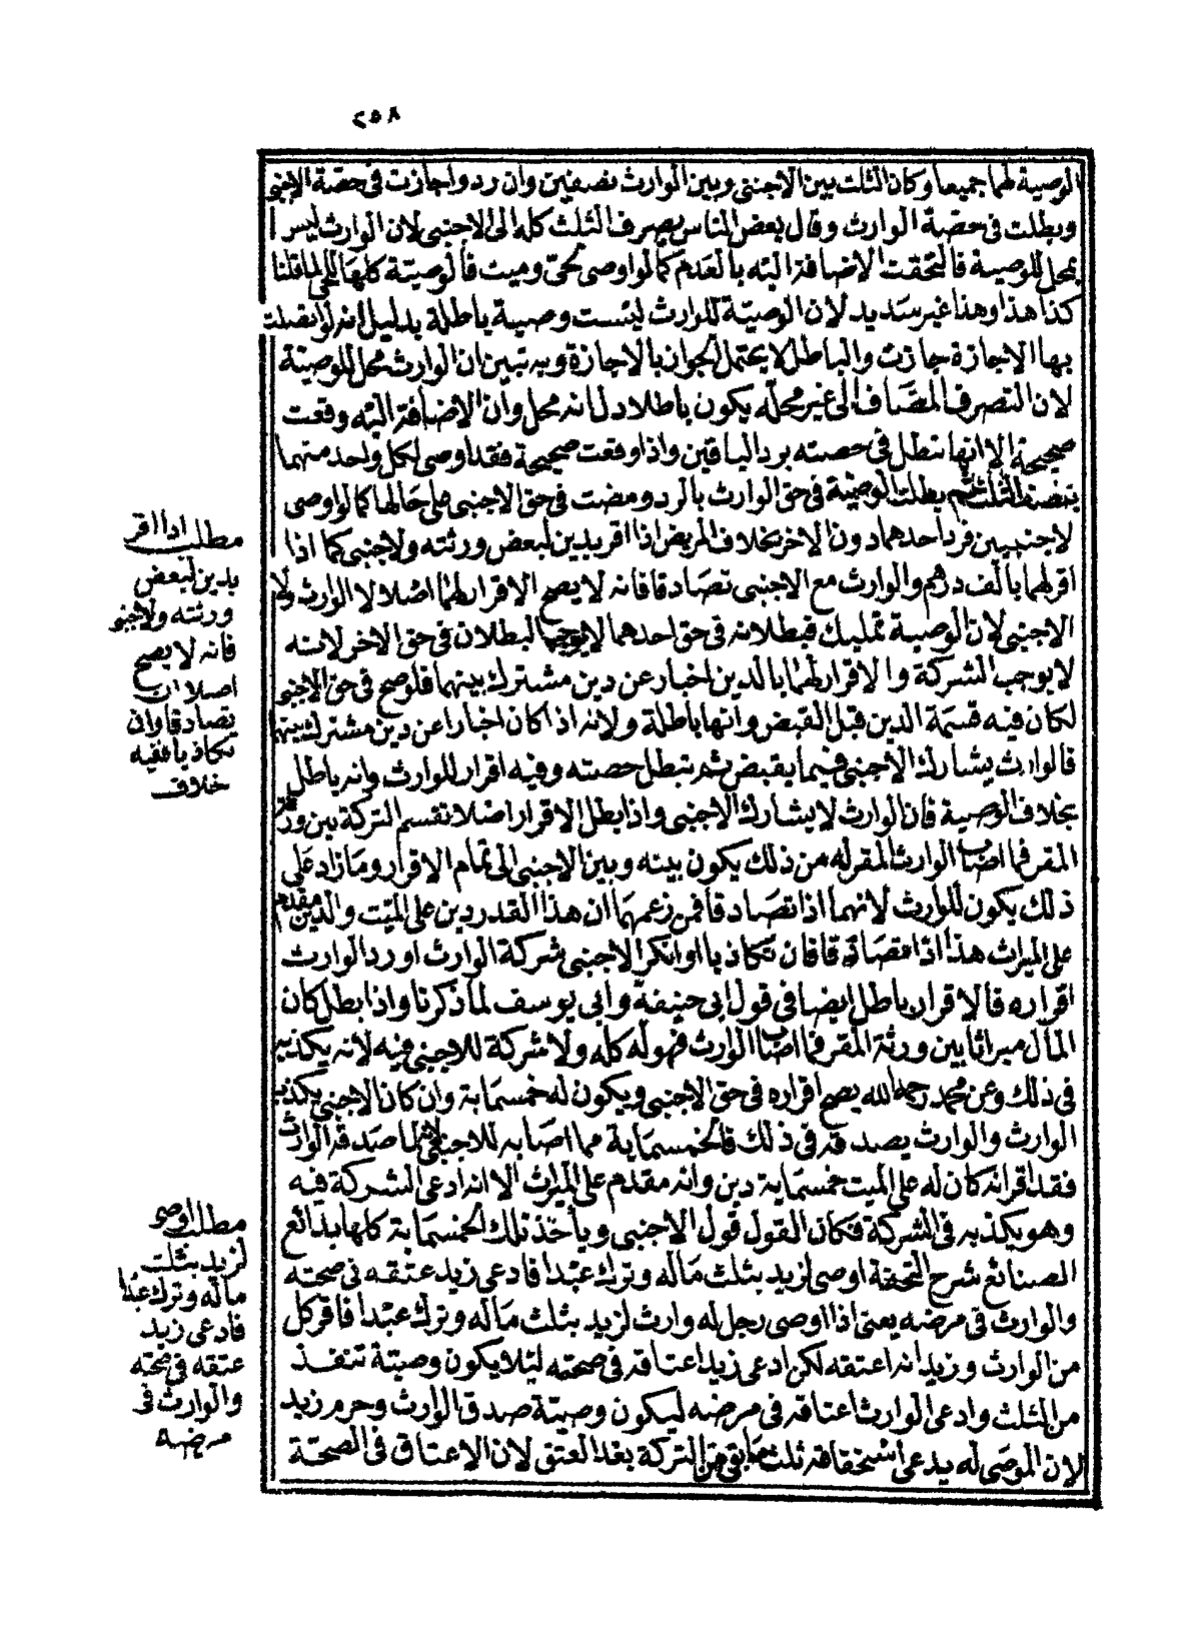 ٢٥٨
الوصية لهما جميعا وكان الثلث بين الاجنبي وبين الوارث نصفين وان ردوا جازت في حصة الاجنبي
وبطلت في حصة الوارث وقال بعض الناس يصرف الثلث كله الى الاجنبي لان الوارث ليس
بمحل للوصية فالتحقت الاضافة اليه بالعدم كما لو اوصى لحي وميت فالوصية كلها للحي لما قلنا
كذا هذا وهذا غير سديد لان الوصية للوارث ليست وصية باطلة بدليل انه لو اتصلت
بها الاجازة جازت والباطل لا يحتمل الجواز بالاجازة وبه تبين ان الوارث محل للوصية
لان التصرف المضاف الى غير محله يكون باطلا دل انه محل وان الاضافة اليه وقعت
صحيحة الا انها تبطل في حصته برد الباقين واذا وقعت صحيحة فقد اوصى لكل واحد منهما
بنصف الثلث ثم بطلت الوصية في حق الوارث بالرد ومضت في حق الاجنبي على حالها كما لو اوصى
لاجنبيين فرد احدهما دون الاخر بخلاف المريض اذا اقر بدين لبعض ورثته ولاجنبي كما اذا
اقر لهما بالف درهم والوارث مع الاجنبي تصادقا فانه لا يصح الاقرار لهما اصلا لا الوارث ولا
الاجنبي لان الوصية تمليك فبطلانه في حق احدهما لا يوجب البطلان في حق الاخر لانه
لا يوجب الشركة والاقرار لهما بالدين اخبار عن دين مشترك بينهما فلو صح في حق الاجنبي
لكان فيه قسمة الدين قبل القبض وانها باطلة ولانه اذا كان اخبارا عن دين مشترك بينهما
فالوارث يشارك الاجنبي فيما يقبض ثم تبطل حصته وفيه اقرار للوارث وانه باطل
بخلاف الوصية فان الوارث لا يشارك الاجنبي واذا بطل الاقرار اصلا تقسم التركة بين ورثة
المقر فما اصاب الوارث المقر له من ذلك يكون بينه وبين الاجنبي الى تمام الاقرار وما زاد على
ذلك يكون للوارث لانهما اذا تصادقا فمن زعمهما ان هذا القدر دين على الميت والدين مقدم
على الميراث هذا اذا تصادقا فان تكاذبا او انكر الاجنبي شركة الوارث او رد الوارث
اقراره فالاقرار باطل ايضا في قول ابي حنيفة وابي يوسف لما ذكرنا واذا بطل كان
المال ميراثا بين ورثة المقر فما اصاب الوارث فهو له كله ولا شركة للاجنبي فيه لانه يكذبه
في ذلك وعن محمد رحمه الله يصح اقراره في حق الاجنبي ويكون له خمسماية وان كان الاجنبي يكذبه
الوارث والوارث يصدقه في ذلك فالخمسماية مما اصابه للاجنبي لانه لما صدقه الوارث
فقد اقر انه كان له على الميت خمسماية دين وانه مقدم على الميراث الا انه ادعى الشركة فيه
وهو يكذبه في الشركة فكان القول قول الاجنبي وياخذ تلك الخمسماية كلها بدائع
الصنائع شرح التحفة اوصى لزيد بثلث ماله وترك عبدا فادعى زيد عتقه في صحته
والوارث في مرضه يعني اذا اوصى رجل له وارث لزيد بثلث ماله وترك عبدا فاقر كل
من الوارث وزيد انه اعتقه لكن ادعى زيد اعتاقه في صحته لئلا يكون وصية تنفذ
من الثلث وادعى الوارث اعتاقه في مرضه ليكون وصية صدق الوارث وحرم زيد
لان الموصى له يدعى استحقاقه ثلث ما بقي من التركة بعد العتق لان الاعتاق في الصحة
مطلب اذا اقر
بدين لبعض
ورثته ولاجنبي
فانه لا يصح
اصلا ان
تصادقا وان
تكاذبا ففيه
خلاف
مطلب اوصى
لزيد بثلث
ماله وترك عبدا
فادعى زيد
عتقه في صحته
والوارث في
مرضه